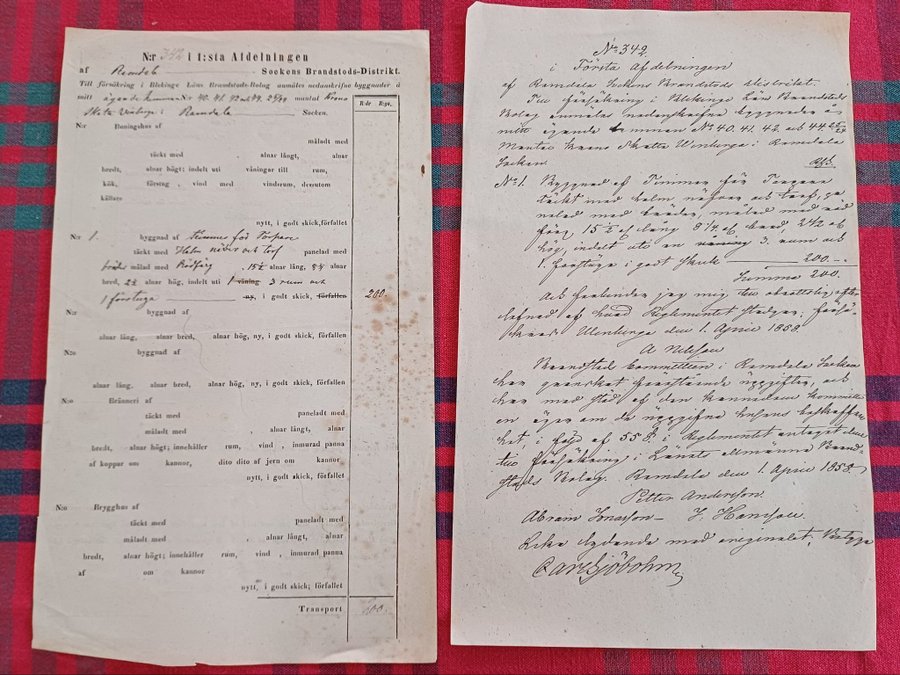 N:r 342 i 1:sta Afdelningen
af Ramdala Sockens Brandstods-Distrikt.
Till försäkring i Blekinge Läns Brandstods-Bolag anmäles nedanskrifne byggnader å
mitt ägande hemman Nr 40. 41. 42 och 44. 25/29 mantal Krono
Skatte Ramdala Socken. R:dr R:gs.
N:r Boningshus af
målad med
täckt med , alnar långt, alnar
bredt, alnar högt; indelt uti våningar till rum,
kök, förstug , vind med vindsrum, dessutom
källare
nytt, i godt skick, förfallet
N:r 1. byggnad af timmer för torpare
täckt med Halm näfver och torf panelad med
bräder målad med Rödfärg . 15½ alnar lång, 8¼ alnar
bred, 2½ alnar hög, indelt uti 1 våning 3 rum och
1 förstuga ny, i godt skick, förfallen 200.
N:r byggnad af
alnar lång, alnar bred, alnar hög, ny, i godt skick, förfallen
N:o byggnad af
alnar lång, alnar bred, alnar hög, ny, i godt skick, förfallen
N:o Bränneri af
täckt med paneladt med
måladt med alnar långt, alnar
bredt, alnar högt; innehåller rum, vind , inmurad panna
af koppar om kannor, dito dito af jern om kannor,
nytt, i godt skick, förfallet
N:o Brygghus af
täckt med paneladt med
måladt med , alnar långt, alnar
bredt, alnar högt; innehåller rum, vind , inmurad panna
af om kannor
nytt, i godt skick; förfallet
Transport 200.
No 342
i Första Afdelningen
af Ramdala Sockens Brandstods distrikt.
Till försäkring i Blekinge Läns Brandstods
Bolag anmäles nedanskrifne byggnader å
mitt ägande hemman No 40. 41. 42 och 44 25/29
Mantal Krono Skatte i Ramdala
Socken.
No 1. Byggnad af Timmer för Torpare
täckt med halm näfver och torf, pa
nelad med bräder, målad med röd
färg 15½ al lång 8¼ al. bred 2½ al
hög, indelt uti en våning 3. rum och
1. förstuga i godt skick 200.
Summa 200.
Och förbinder jag mig till efter
lefnad af hvad Reglementet stadgar; försä
kras den 1. April 1858
A Nilsson
Brandstod Committeen i Ramdala Socken
har granskat förestående uppgifter, och
har med stöd af den kännedom kommitté
en äger om de uppgifne husens beskaffen
het, i följd af 55 § i Reglementet antaget dem
till försäkring i Länets allmänna Brand
stods Bolag. Ramdala den 1. April 1858.
Petter Andersson.
Abram Jonasson J. Hansson
Lika lydande med originalet, Betyga
Carl Sjöbohm